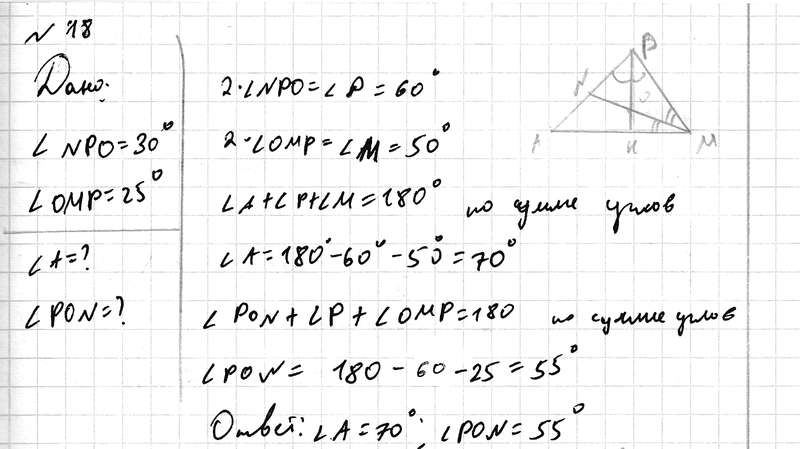 № 18
Дано:
∠NPO=30°
∠OMP=25°
∠A=?
∠PON=?
2·∠NPO=∠P=60°
2·∠OMP=∠M=50°
∠A+∠P+∠M=180° по сумме углов
∠A=180°-60°-50°=70°
∠PON+∠P+∠OMP=180 по сумме углов
∠PON= 180-60-25=55°
Ответ: ∠A=70°; ∠PON=55°
N
O
A
M